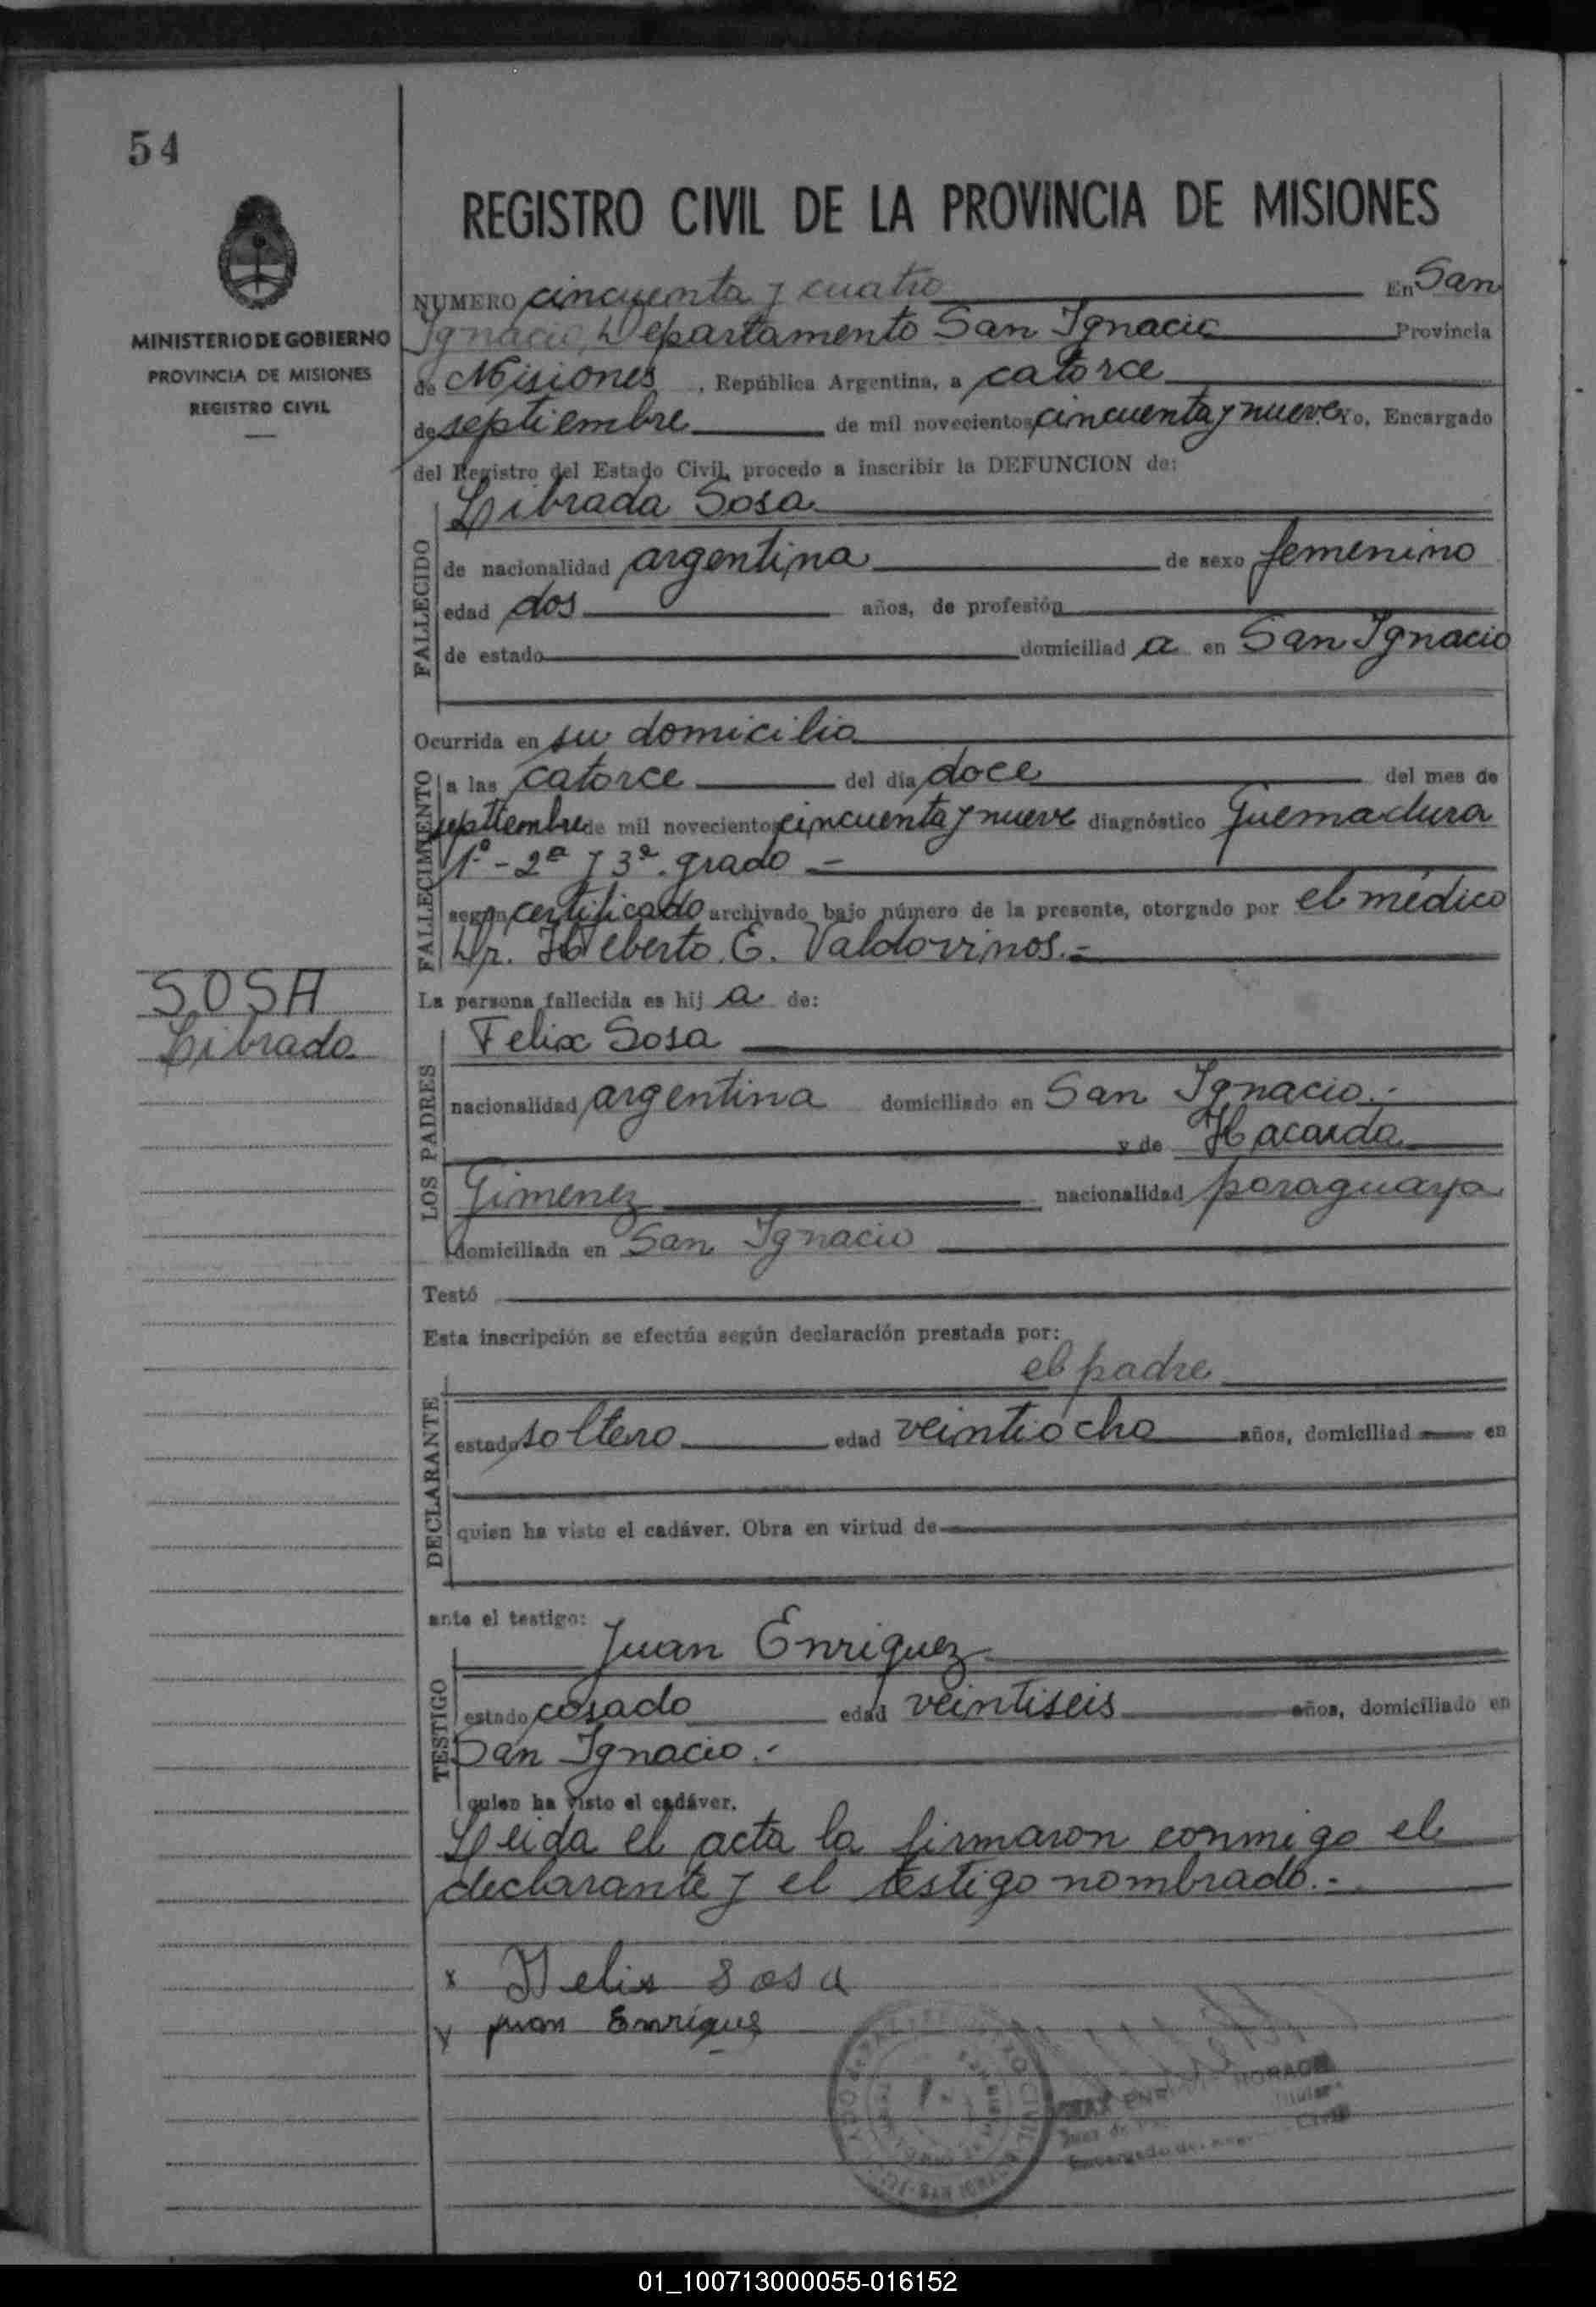 54
MINISTERIO DE GOBIERNO
PROVINCIA DE MISIONES
REGISTRO CIVIL
REGISTRO CIVIL DE LA PROVINCIA DE MISIONES
NUMERO cincuenta y cuatro En San
Ignacio, Departamento San Ignacio Provincia
de Misiones, República Argentina, a catorce
de septiembre de mil novecientos cincuenta y nueve Yo, Encargado
del Registro del Estado Civil, procedo a inscribir la DEFUNCION de:
FALLECIDO
Librada Sosa
de nacionalidad argentina de sexo femenino
edad dos años, de profesión
de estado domiciliad a en San Ignacio
Ocurrida en su domicilio
FALLECIMIENTO
a las catorce del día doce del mes de
septiembre de mil novecientos cincuenta y nueve diagnóstico Quemadura
1º - 2ª y 3ª. grado -
según certificado archivado bajo número de la presente, otorgado por el médico
Dr. Heberto E. Valdovinos.-
SOSA
Librado
La persona fallecida es hij a de:
LOS PADRES
Felix Sosa
nacionalidad argentina domiciliado en San Ignacio.-
y de
Gimenez nacionalidad paraguaya
domiciliada en San Ignacio
Testó
Esta inscripción se efectúa según declaración prestada por:
DECLARANTE
el padre
estado soltero edad veintiocho años, domiciliad en
quien ha visto el cadáver. Obra en virtud de
ante el testigo:
TESTIGO
Juan Enriquez
estado casado edad veintiseis años, domiciliado en
San Ignacio.-
quien ha visto el cadáver.
Leida el acta la firmaron conmigo el
declarante y el testigo nombrado.-
x Felix Sosa
x Juan Enriquez
01_100713000055-016152